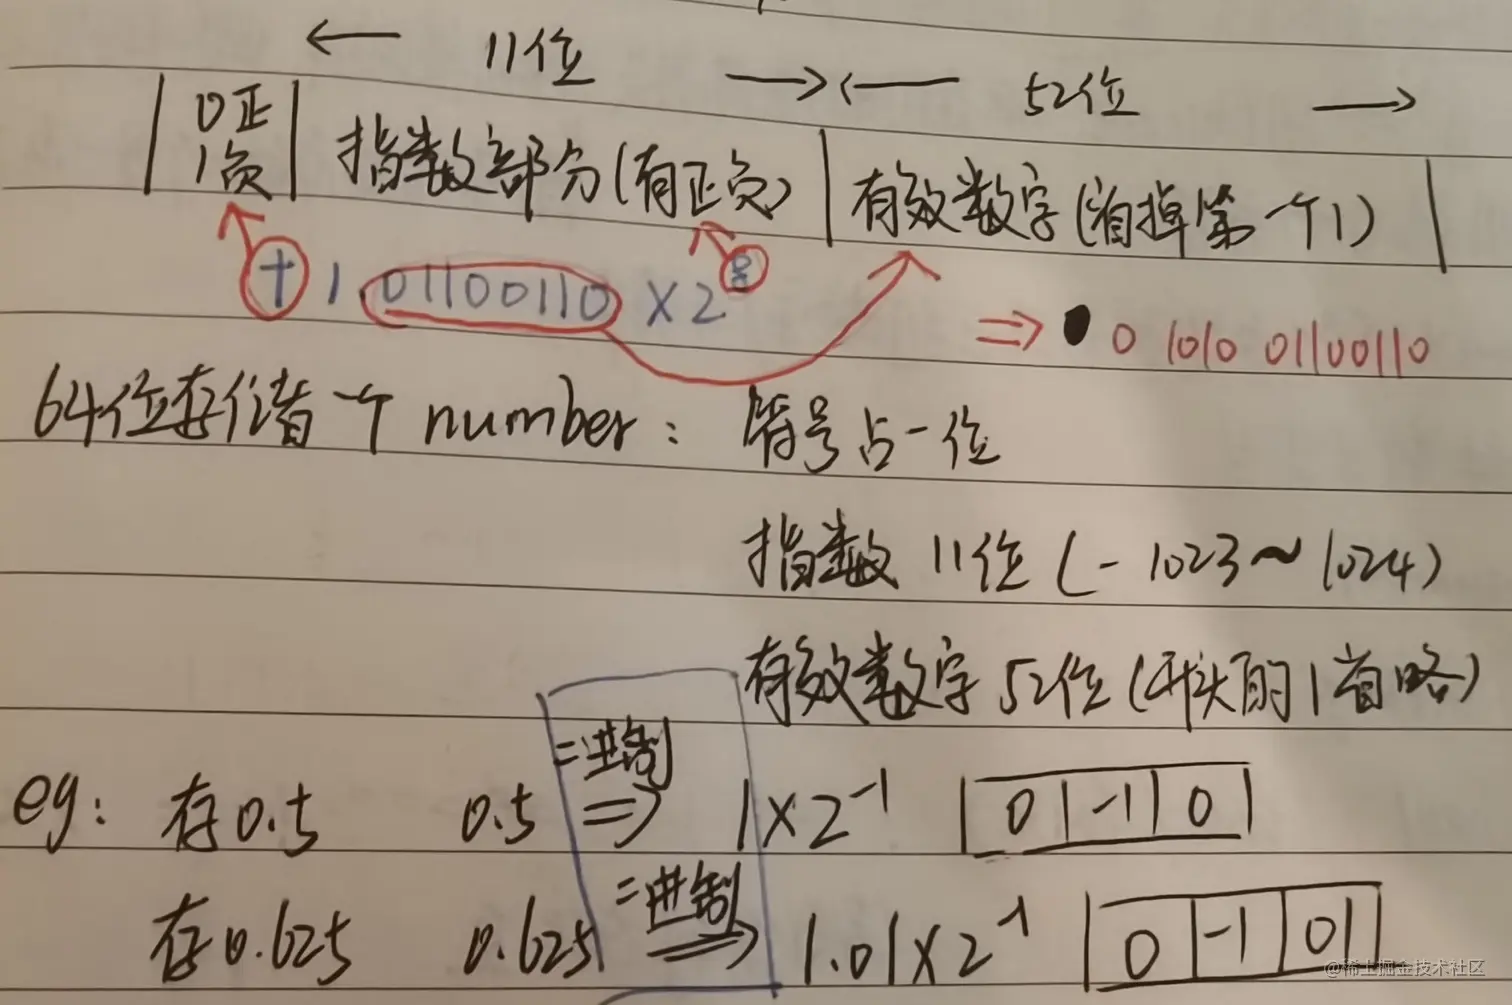 11位 52位
0正 1负 指数部分(有正负) 有效数字(省掉第一个1)
+ 1.01100110 × 2⁸
⇒ 0 1010 01100110
64位存储一个 number: 符号占一位
指数 11位 (-1023~1024)
有效数字 52位 (开头的1省略)
eg: 存0.5 0.5 二进制⇒ 1×2⁻¹ 0 -1 0
存0.625 0.625 二进制⇒ 1.01×2⁻¹ 0 -1 01
@稀土掘金技术社区